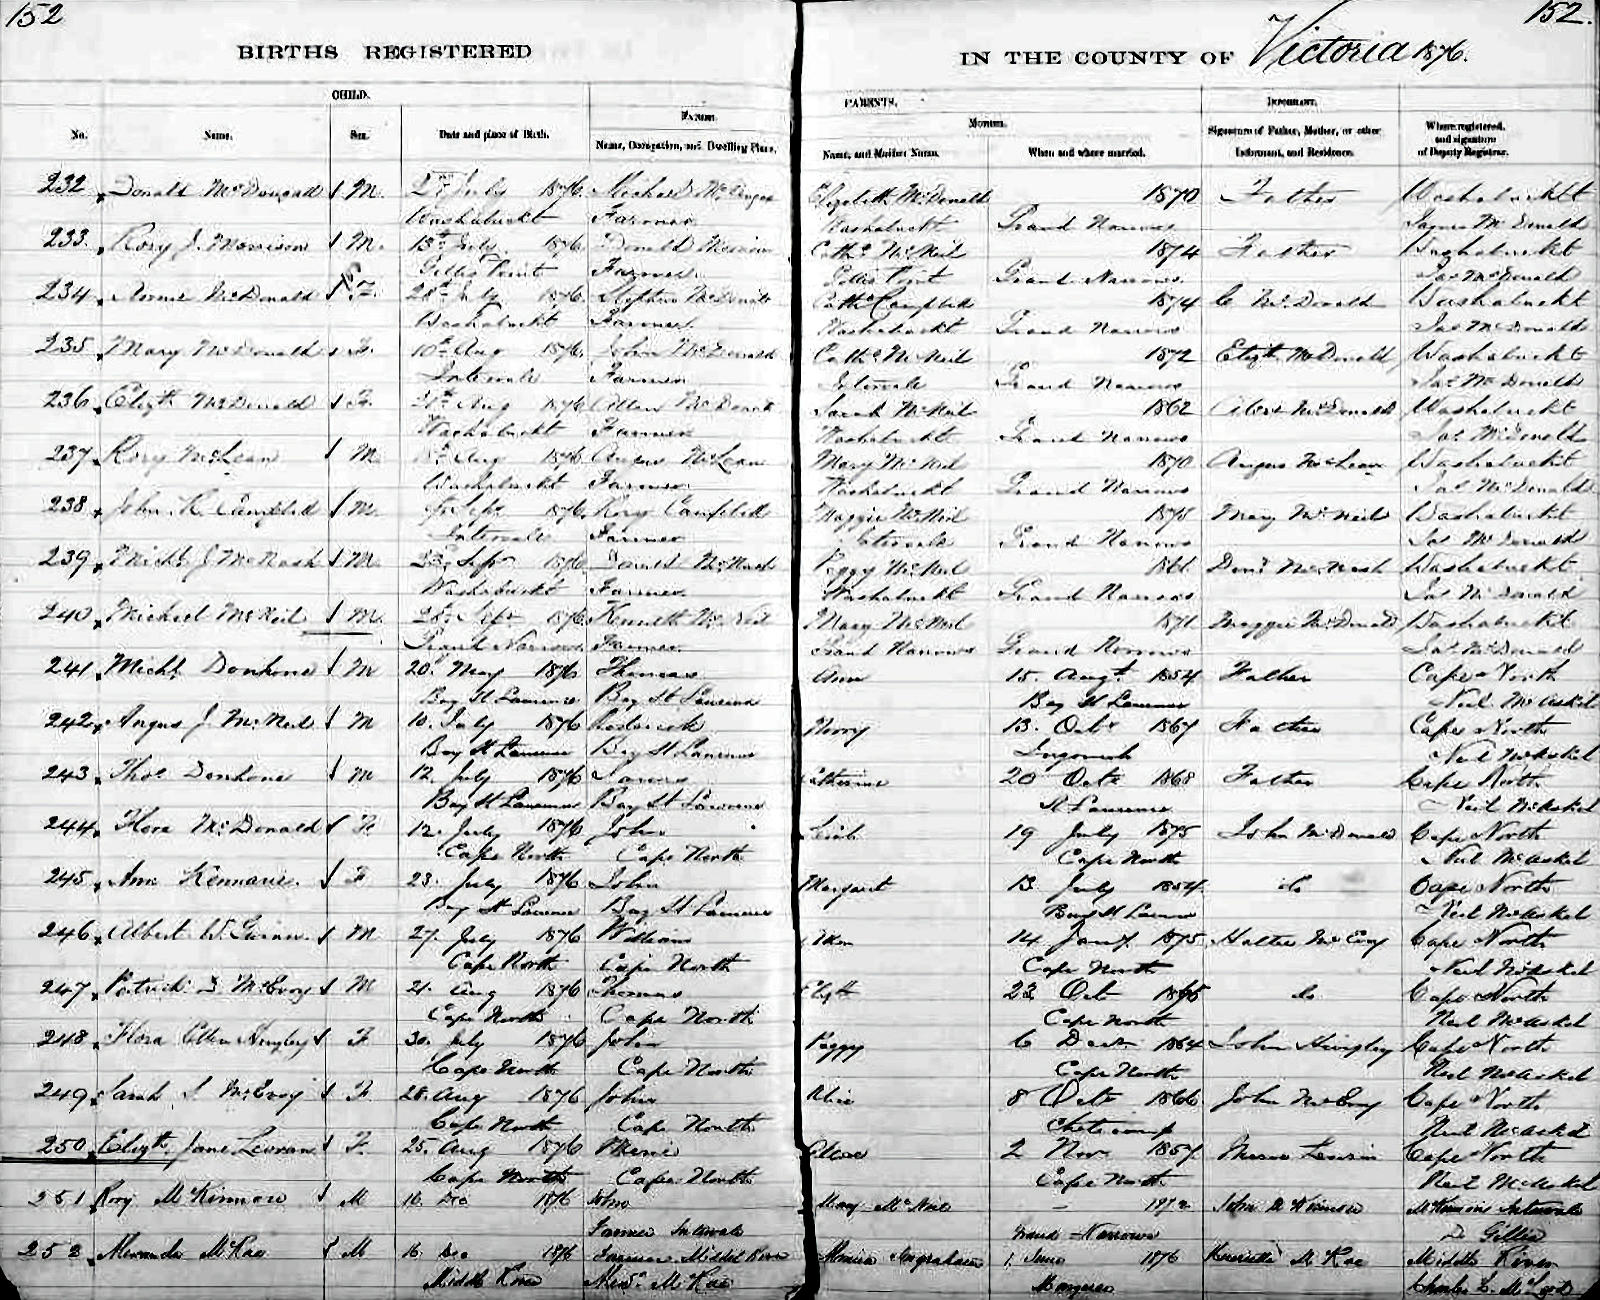 152
152.
BIRTHS REGISTERED
IN THE COUNTY OF Victoria 1876.
CHILD.
FATHER.
PARENTS.
MOTHER.
INFORMANT.
No.
Name.
Sex.
Date and place of Birth.
Name, Occupation, and Dwelling Place.
Name, and Maiden Name.
When and where married.
Signature of Father, Mother, or other
Informant, and Residence.
Where registered,
and signature
of Deputy Registrar.
232 Donald McDougall M. July 1876 Elizabeth McDonald 1870 Father Washabuckt
Washabuckt Farmer Washabuckt Grand Narrows James McDonald
233 Rory J. Morrison M. 13th July 1876 Donald Morrison Cath. McNeil 1874 Father Washabuckt
Gillis Point Farmer Gillis Point Grand Narrows Jas McDonald
234 McDonald F. 28th July 1876 Stephen McDonald Cath Campbell 1874 C McDonald Washabuckt
Washabuckt Farmer Washabuckt Grand Narrows Jas McDonald
235 Mary McDonald F. 10th Aug 1876 John McDonald Cath McNeil 1872 Elizth McDonald Washabuckt
Intervale Farmer Intervale Grand Narrows Jas McDonald
236 Elizth McDonald F. Aug 1876 Allan McDonald Sarah McNeil 1862 McDonald Washabuckt
Washabuckt Farmer Washabuckt Grand Narrows Jas McDonald
237 Rory McLean M. Aug 1876 Angus McLean Mary McNeil 1870 Angus McLean Washabuckt
Washabuckt Farmer Washabuckt Grand Narrows Jas McDonald
238 John R. Campbell M. Sept 1876 Rory Campbell Maggie McNeil Mary McNeil Washabuckt
Intervale Farmer Intervale Grand Narrows Jas McDonald
239 Michl J McNash M. 23 Sept 1876 McNash Peggy McNeil McNash Washabuckt
Washabuckt Farmer Washabuckt Grand Narrows Jas McDonald
240 Michael McNeil M. 28 Sept 1876 Kenneth McNeil Mary McNeil 1871 Maggie McDonald Washabuckt
Grand Narrows Farmer Grand Narrows Grand Narrows Jas McDonald
241 Michl Donhone M 20 May 1876 Thomas Ann 15. Augt. 1854 Father Cape North
Bay St Lawrence Bay St Lawrence Bay St Lawrence Neil McAskil
242 Angus J. McNeil M 10. July 1876 Roderick 13. Oct 1867 Father Cape North
Bay St Lawrence Bay St Lawrence Ingonish Neil McAskil
243 Thos Donhone M 12. July 1876 Catherine 20 Oct 1868 Father Cape North
Bay St Lawrence Bay St Lawrence St Lawrence Neil McAskil
244 Flora McDonald F 12. July 1876 John 19 July 1875 John McDonald Cape North
Cape North Cape North Cape North Neil McAskil
245 Ann F 23. July 1876 John Margaret 13. July 1854 do Cape North
Bay St Lawrence Bay St Lawrence Bay St Lawrence Neil McAskil
246 Albert W. M 27. July 1876 William 14 Jany. 1875 McEvoy Cape North
Cape North Cape North Cape North Neil McAskil
247 Patrick McEvoy M 21. Aug 1876 Thomas Elizth 22 Oct do Cape North
Cape North Cape North Cape North Neil McAskil
248 Flora Ellen Hingley F 30. July 1876 John Peggy 6 Dec 1864 John Hingley Cape North
Cape North Cape North Cape North Neil McAskil
249 Sarah McEvoy F 28. Aug 1876 John Alice 8 Oct 1866 John McEvoy Cape North
Cape North Cape North Neil McAskil
250 Elizth Jane F. 25. Aug 1876 2 Nov 1857 Cape North
Cape North Cape North Cape North Neil McAskil
251 Rory McKinnon M 16. Dec 1876 John Mary McNeil John McKinnon McKinnons Intervale
Farmer Intervale Grand Narrows D Gillis
252 Alexander McRae M 16. Dec 1876 Farmer Middle River Ingraham 1. June 1876 Henrietta McRae Middle River
Middle River Alexr. McRae Margaree Charles L. McLeod